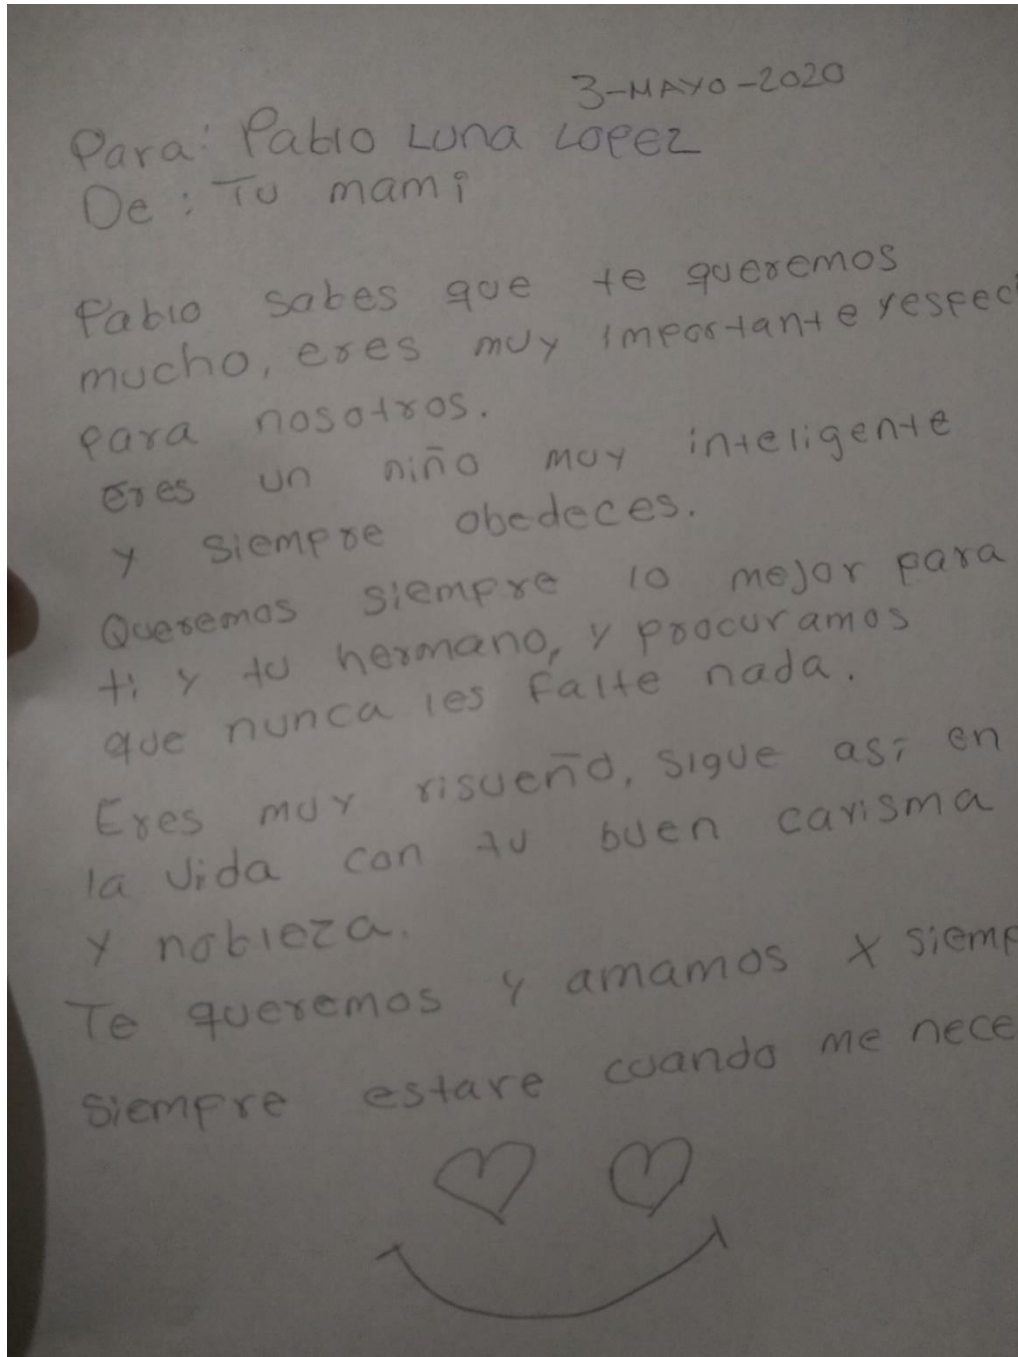 3-MAYO-2020
Para: Pablo Luna Lopez
De: Tu mami
Pablo sabes que te queremos
mucho, eres muy importante respec
para nosotros.
Eres un niño muy inteligente
y siempre obedeces.
Queremos siempre lo mejor para
ti y tu hermano, y procuramos
que nunca les falte nada.
Eres muy risueño, sigue así en
la vida con tu buen carisma
y nobleza.
Te queremos y amamos x siemp
siempre estare cuando me nece